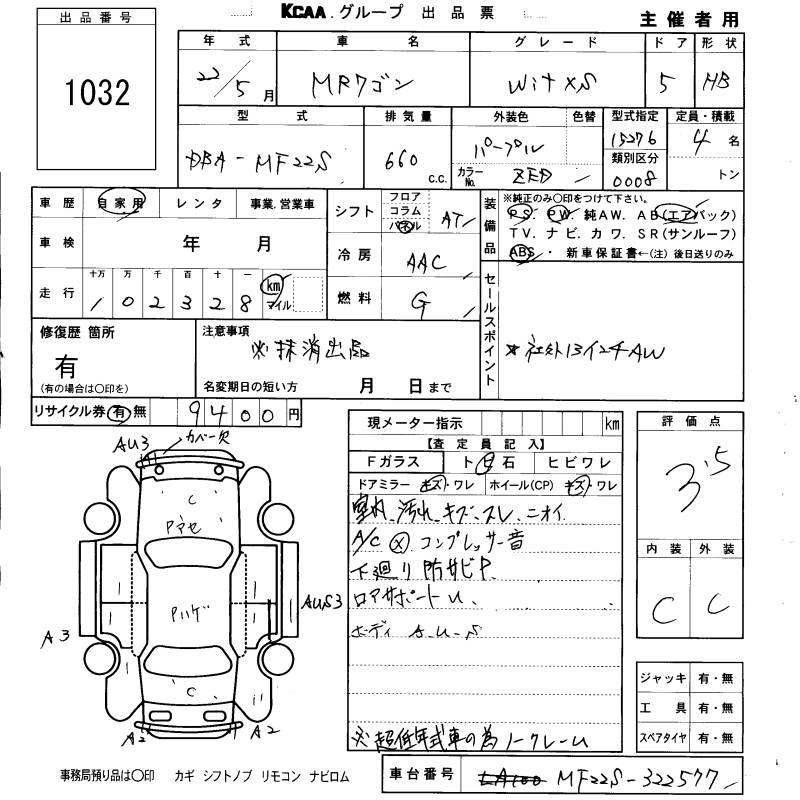 KCAA.グループ 出品票
主催者用
出品番号
1032
年式 車名 グレード ドア 形状
22/5月 MRワゴン Wit XS 5 HB
型式 排気量 外装色 色替 型式指定 定員・積載
DBA-MF22S 660 c.c. パープル 15276 4名
カラーNo. ZED 類別区分 0008 トン
車歴 自家用 レンタ 事業.営業車
車検 年 月
走行 十万 万 千 百 十 一
1 0 2 3 2 8 km マイル
シフト フロア コラム パネル AT
冷房 AAC
燃料 G
装備品 ※純正のみ○印をつけて下さい。
PS. PW. 純AW. AB(エアバック)
TV. ナビ. カワ. SR(サンルーフ)
ABS・ 新車保証書←(注)後日送りのみ
セールスポイント
※社外13インチAW
修復歴 箇所
有
(有の場合は○印を)
注意事項
※抹消出品
名変期日の短い方 月 日まで
リサイクル券 有 無 9400円
現メーター指示 km
【査定員記入】
Fガラス ト 石 ヒビワレ
ドアミラー キズ・ワレ ホイール(CP) キズ・ワレ
室内、汚れ、キズ、スレ、ニオイ
A/C ✕ コンプレッサー音
下廻り防サビP.
ロアサポートU、
ボディ A.U.S
※超低年式車の為ノークレーム
評価点
3.5
内装 外装
C C
AU3 カバー欠
C
Pマセ
Pハゲ
AUS3
A3
C
A2 A2
ジャッキ 有・無
工具 有・無
スペアタイヤ 有・無
事務局預り品は○印 カギ シフトノブ リモコン ナビロム
車台番号 MF22S-322577